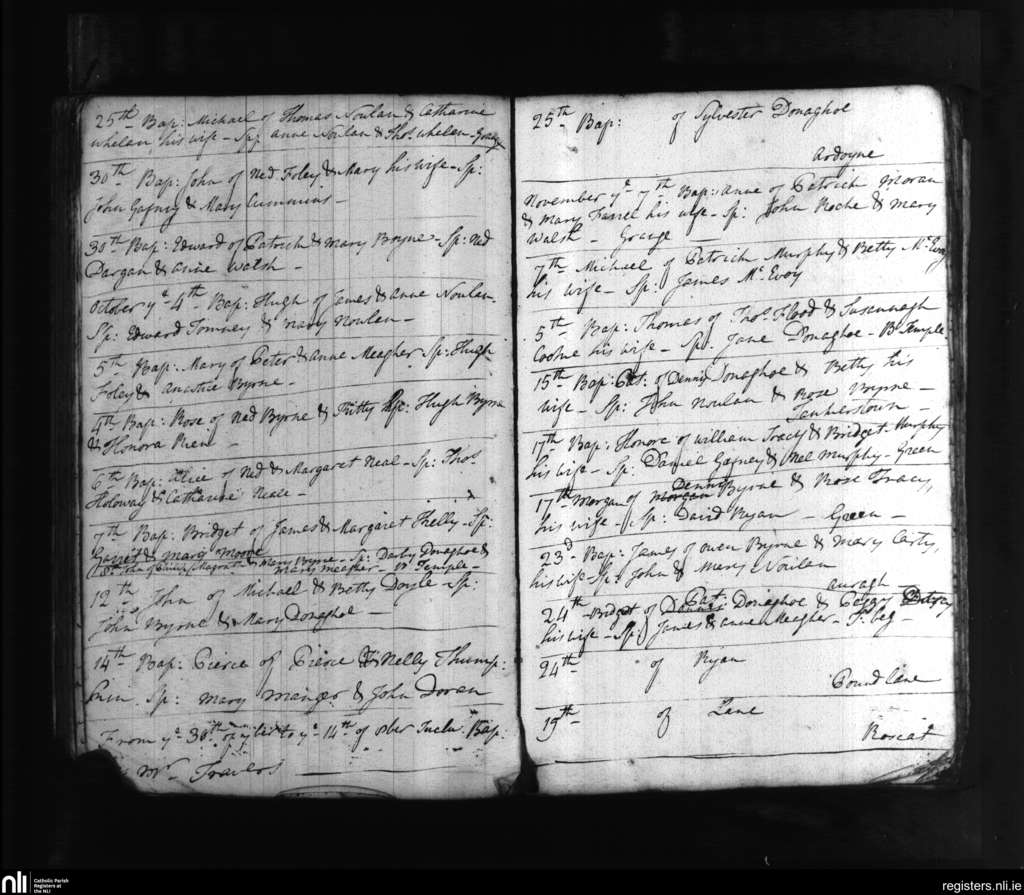 25th Bap: Michael of Thomas Noulan & Catharine
Whelan, his wife - Sp: Anne Noulan & Thos. Whelan - Graige
30th Bap: John of Ned Foley & Mary his wife - Sp:
John Gafney & Mary Cummins -
30th Bap: Edward of Patrick & Mary Bryne - Sp: Ned
Dargan & Anne Walsh -
October ye 4th Bap: Hugh of James & Anne Noulan
Sp: Edward Tomney & Mary Noulan -
5th Bap: Mary of Peter & Anne Meagher Sp: Hugh
Foley & Anastice Byrne -
4th Bap: Rose of Ned Byrne & Kitty Sp: Hugh Byrne
& Honora
6th Bap: Alice of Ned & Margaret Neal - Sp: Thos.
Holoway & Catharine Neale -
7th Bap: Bridget of James & Margaret Kelly - Sp:
Garret & Mary Moore
John of & Mary Byrne - Sp: Darby Donaghoe &
Mary Meagher - Temple -
12th John of Michael & Betty Doyle - Sp:
John Byrne & Mary Donaghoe -
14th Bap: Pierce of Pierce & Nelly Thump:
Sp: Mary & John Doran
From ye 30th of to ye 14th of ober Inclu: Bap:
Mr. Travers
25th Bap: of Sylvester Donaghoe
Ardoyne
November ye 7th Bap: Anne of Patrick Moran
& Mary Farrel his wife - Sp: John Roche & Mary
Walsh - Graige
7th Michael of Patrick Murphy & Betty McEvoy
his wife - Sp: James McEvoy
5th Bap: Thomas of Thos. Flood & Susannagh
Cooke his wife - Sp: Jane Donaghoe - B: Temple
15th Bap: Pat: of Denny Donaghoe & Betty his
wife - Sp: John Noulan & Rose Byrne -
17th Bap: Honora of William Tracy & Bridget Murphy
his wife - Sp: Daniel Gafney & Nel Murphy - Green
Dennis
17th Morgan of Morgan Byrne & Rose Tracy,
his wife - Sp: David Ryan - Green -
23d Bap: James of Owen Byrne & Mary Carty,
his wife - Sp: John & Mary Noulan
auragh
Pat
24th Bridget of Dennis Donaghoe & Peggy
his wife - Sp: James & Anne Meagher -
24th of Ryan
Pound lane
19th of Lane
Roscat
nli
Catholic Parish
Registers at
the NLI
registers.nli.ie